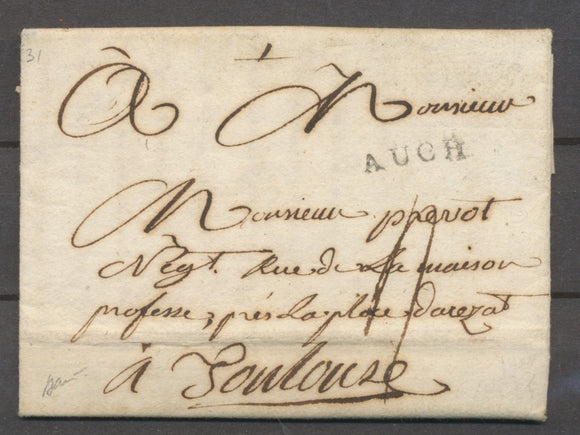 31
À Monsieur
AUCH
Monsieur prevot
Négt. Rue de La maison
professe, prés La place darezat
à Toulouse